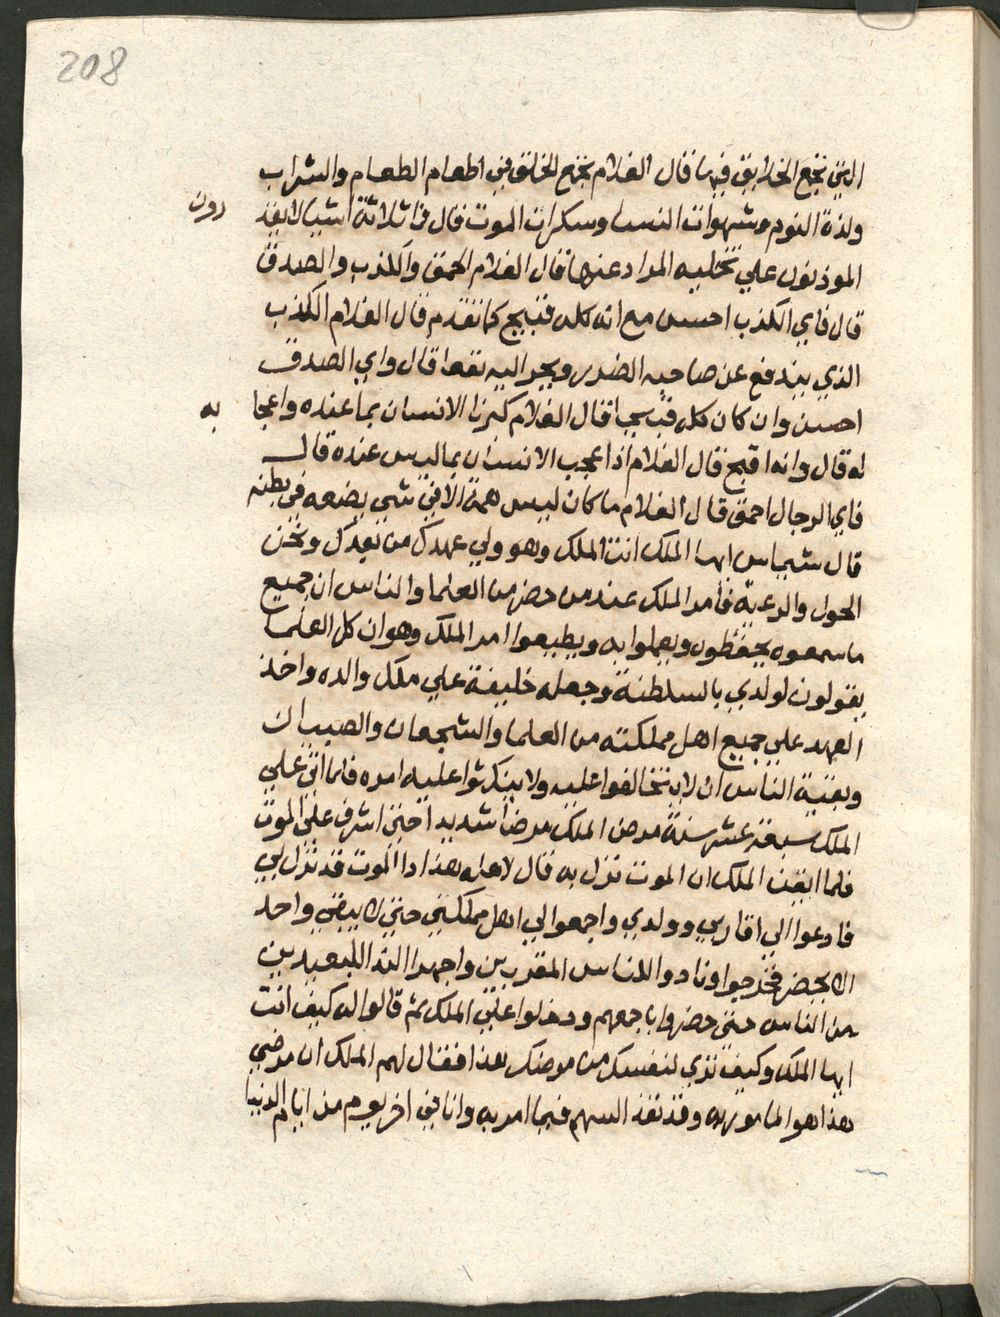 208
التي تجمع الخلايق فيها قال الغلام تجمع الخلق في اطعام الطعام والشراب
ولذة النوم وشهوات النسا وسكرات الموت قال فما ثلاثة اشيا لا يقد
رون
الموذنون علي تخليه المراد عنها قال الغلام الحمق والكذب والصدق
قال فاي الكذب احسن مع انه كله قبيح كما تقدم قال الغلام الكذب
الذي يندفع عن صاحبه الضرر ويجر اليه نفعا قال واي الصدق
احسن وان كان كله قبيحا قال الغلام كبر الانسان بما عنده واعجا
به
له قال وانه اقبح قال الغلام اذا عجب الانسان بما ليس عنده قال
فاي الرجال احمق قال الغلام ما كان ليس همة الا في شي يضعه في بطنه
قال شيماس ايها الملك انت الملك وهو ولي عهدك من بعدك ونحن
الخول والرعية فامر الملك عند من حضر من العلما والناس ان جميع
ما سمعوه يحفظون ويعملوا به ويطيعوا امر الملك وهو ان كل العلما
يقولون لولدي بالسلطنة وجعله خليفة علي ملك والده واخذ
العهد علي جميع اهل مملكته من العلما والشجعان والصبيان
وبقية الناس ان لا يتخالفوا عليه ولا ينكثوا عليه امره فلما اتي علي
الملك سبعة عشر سنة مرض الملك مرضا شديدا حتي اشرف علي الموت
فلما ايقن الملك ان الموت نزل به قال لاهله هذا دا الموت قد نزل بي
فادعوا الي اقاربي وولدي واجمعوا لي اهل مملكتي حتي لا يبقي واحد
الا يحضر فخرجوا ونادوا للناس المقربين واجهروا الندا للبعيدين
من الناس حتي حضروا باجمعهم ودخلوا علي الملك ثم قالوا له كيف انت
ايها الملك وكيف تري لنفسك من مرضك هذا فقال لهم الملك ان مرضي
هذا هو الما مو ربه وقد نفذ السهم فيما امر به وانا في اخر يوم من ايام الدنيا